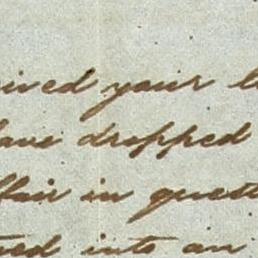 ived your l
have dropped
ffair in quest
ed into an